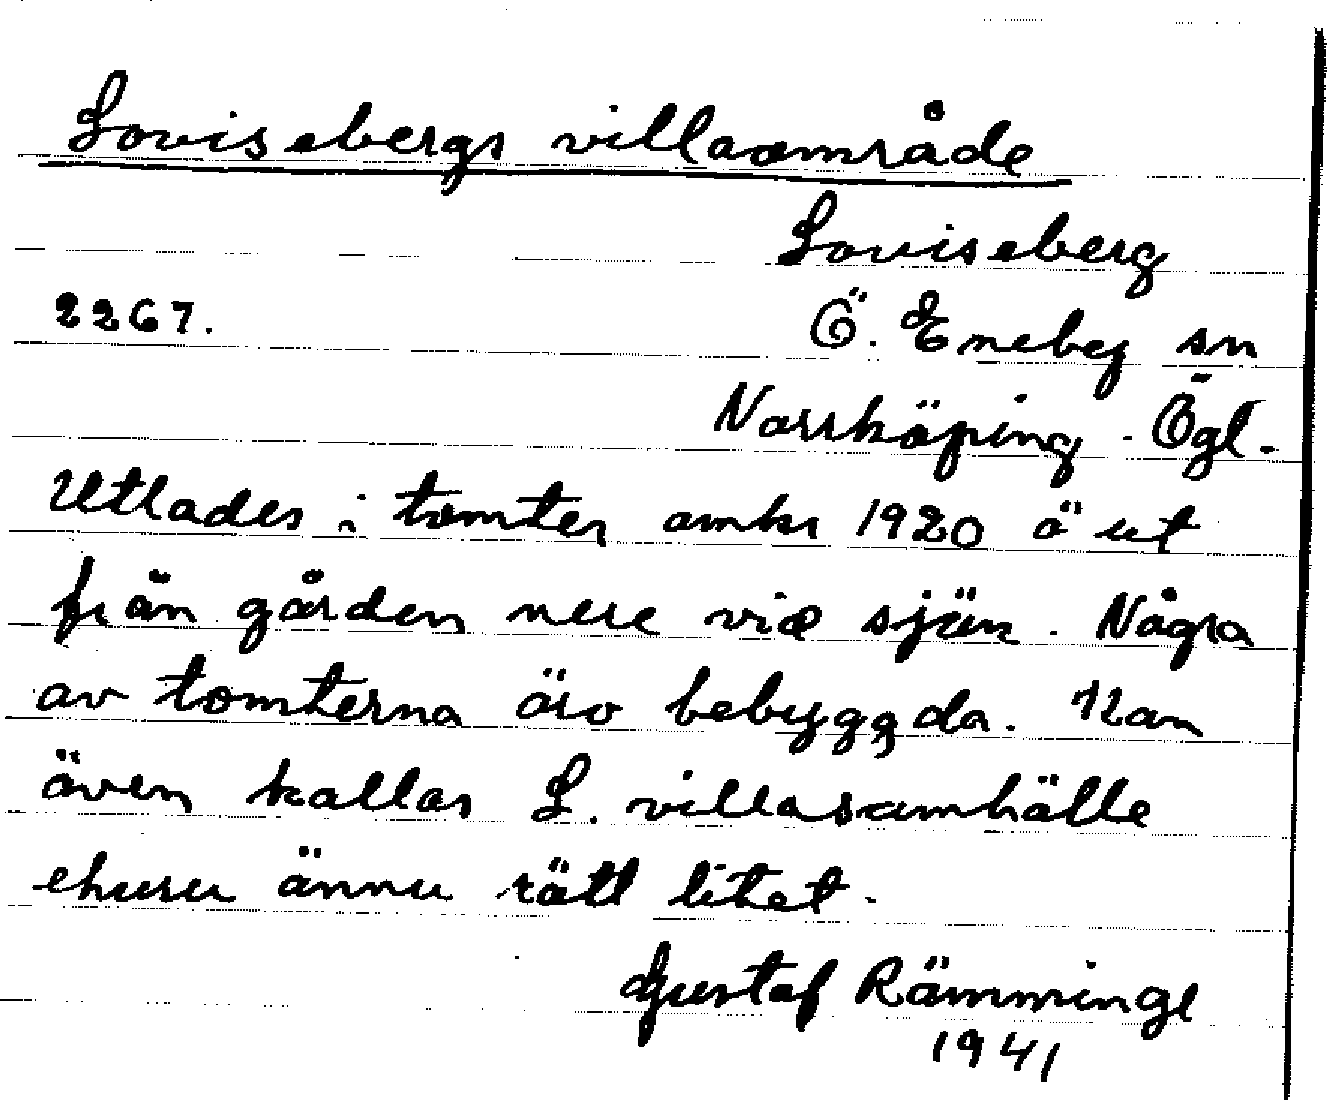 Lovisebergs villaområde
Loviseberg
2267.
Ö. Eneby sn
Norrköping. Ögl.
Utlades i tomter omkr 1920 ö ut
från gården nere vid sjön. Några
av tomterna äro bebyggda. Kan
även kallas L. villasamhälle
ehuru ännu rätt litet.
Gustaf Rämminge
1941